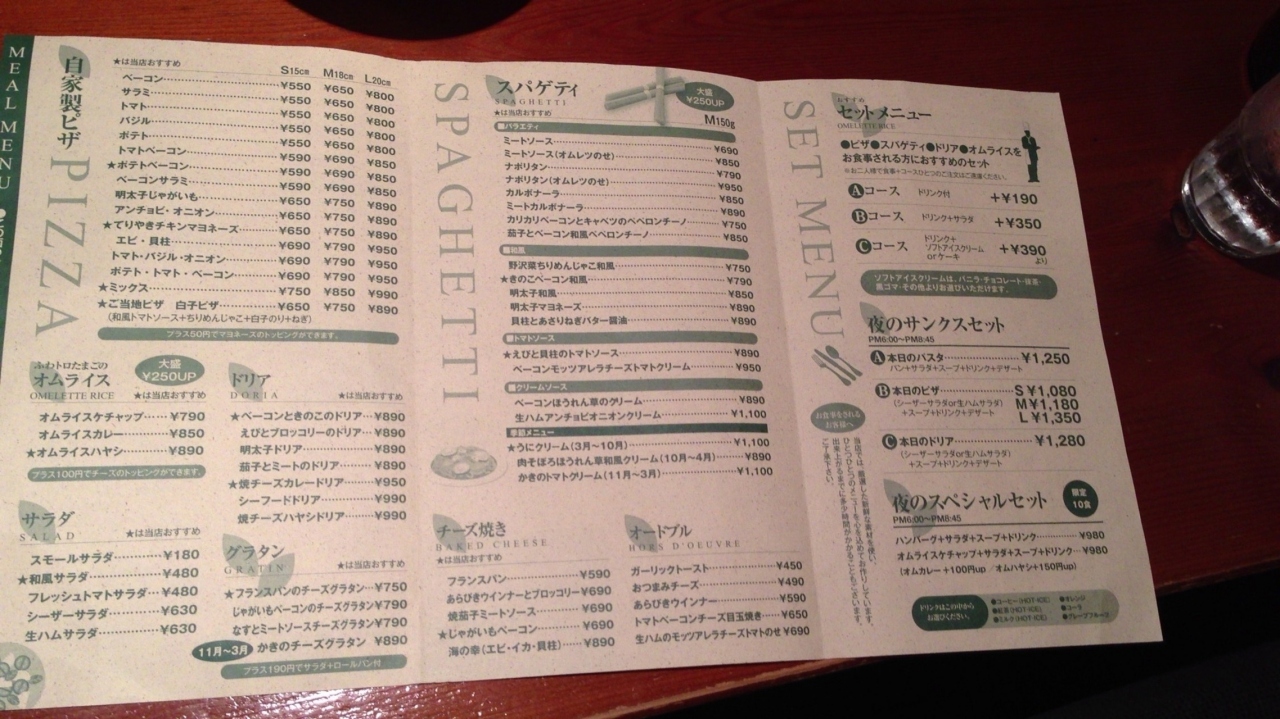 MEAL MENU
自家製ピザ
PIZZA
★は当店おすすめ
S15cm M18cm L20cm
ベーコン ¥550 ¥650 ¥800
サラミ ¥550 ¥650 ¥800
トマト ¥550 ¥650 ¥800
バジル ¥550 ¥650 ¥800
ポテト ¥550 ¥650 ¥800
トマトベーコン ¥590 ¥690 ¥850
★ポテトベーコン ¥590 ¥690 ¥850
ベーコンサラミ ¥590 ¥690 ¥850
明太子じゃがいも ¥650 ¥750 ¥890
アンチョビ・オニオン ¥650 ¥750 ¥890
★てりやきチキンマヨネーズ ¥650 ¥750 ¥890
エビ・貝柱 ¥690 ¥790 ¥950
トマト・バジル・オニオン ¥690 ¥790 ¥950
ポテト・トマト・ベーコン ¥690 ¥790 ¥950
★ミックス ¥750 ¥850 ¥990
★ご当地ピザ 白子ピザ ¥650 ¥750 ¥890
(和風トマトソース+ちりめんじゃこ+白子のり+ねぎ)
プラス50円でマヨネーズのトッピングができます。
ふわトロたまごの
オムライス
OMELETTE RICE
大盛
¥250UP
★は当店おすすめ
オムライスケチャップ ¥790
オムライスカレー ¥850
★オムライスハヤシ ¥890
プラス100円でチーズのトッピングができます。
サラダ
SALAD
★は当店おすすめ
スモールサラダ ¥180
★和風サラダ ¥480
フレッシュトマトサラダ ¥480
シーザーサラダ ¥630
生ハムサラダ ¥630
ドリア
DORIA
★は当店おすすめ
★ベーコンときのこのドリア ¥890
えびとブロッコリーのドリア ¥890
明太子ドリア ¥890
茄子とミートのドリア ¥890
★焼チーズカレードリア ¥950
シーフードドリア ¥990
焼チーズハヤシドリア ¥990
グラタン
GRATIN
★は当店おすすめ
★フランスパンのチーズグラタン ¥750
じゃがいもベーコンのチーズグラタン ¥790
なすとミートソースチーズグラタン ¥790
11月〜3月 かきのチーズグラタン ¥890
プラス190円でサラダ+ロールパン付
SPAGHETTI
スパゲティ
SPAGHETTI
★は当店おすすめ
大盛
¥250UP
M150g
■バラエティ
ミートソース ¥690
ミートソース(オムレツのせ) ¥850
ナポリタン ¥790
ナポリタン(オムレツのせ) ¥950
カルボナーラ ¥850
ミートカルボナーラ ¥890
カリカリベーコンとキャベツのペペロンチーノ ¥750
茄子とベーコン和風ペペロンチーノ ¥850
■和風
野沢菜ちりめんじゃこ和風 ¥750
★きのこベーコン和風 ¥790
明太子和風 ¥850
明太子マヨネーズ ¥890
貝柱とあさりねぎバター醤油 ¥890
■トマトソース
★えびと貝柱のトマトソース ¥890
ベーコンモッツアレラチーズトマトクリーム ¥950
■クリームソース
ベーコンほうれん草のクリーム ¥890
生ハムアンチョビオニオンクリーム ¥1,100
季節メニュー
★うにクリーム(3月〜10月) ¥1,100
肉そぼろほうれん草和風クリーム(10月〜4月) ¥890
かきのトマトクリーム(11月〜3月) ¥1,100
チーズ焼き
BAKED CHEESE
★は当店おすすめ
フランスパン ¥590
あらびきウインナーとブロッコリー ¥690
焼茄子ミートソース ¥690
★じゃがいもベーコン ¥690
海の幸(エビ・イカ・貝柱) ¥890
オードブル
HORS D'OEUVRE
ガーリックトースト ¥450
おつまみチーズ ¥490
あらびきウインナー ¥590
トマトベーコンチーズ目玉焼き ¥650
生ハムのモッツアレラチーズトマトのせ ¥690
SET MENU
おすすめ
セットメニュー
OMELETTE RICE
●ピザ●スパゲティ●ドリア●オムライスを
お食事される方におすすめのセット
※お二人様で食事+コースひとつのご注文はご遠慮ください。
Aコース ドリンク付 +¥190
Bコース ドリンク+サラダ +¥350
Cコース ドリンク+
ソフトアイスクリーム
orケーキ
+¥390
より
ソフトアイスクリームは、バニラ・チョコレート・抹茶・
黒ゴマ・その他よりお選びいただけます。
夜のサンクスセット
PM6:00〜PM8:45
A 本日のパスタ ¥1,250
パン+サラダ+スープ+ドリンク+デザート
B 本日のピザ S¥1,080
M¥1,180
L¥1,350
(シーザーサラダor生ハムサラダ)
+スープ+ドリンク+デザート
C 本日のドリア ¥1,280
(シーザーサラダor生ハムサラダ)
+スープ+ドリンク+デザート
お食事をされる
お客様へ
当店では、厳選した新鮮な素材を使い、
ひとつひとつのメニューを心を込めてお作りしています。
出来上がるまでに多少時間がかかることもございます。
ご了承下さい。
夜のスペシャルセット
PM6:00〜PM8:45
限定
10食
ハンバーグ+サラダ+スープ+ドリンク ¥980
オムライスケチャップ+サラダ+スープ+ドリンク ¥980
(オムカレー+100円up オムハヤシ+150円up)
ドリンクはこの中から
お選びください。
●コーヒー(HOT・ICE) ●オレンジ
●紅茶(HOT・ICE) ●コーラ
●ミルク(HOT・ICE) ●グレープフルーツ